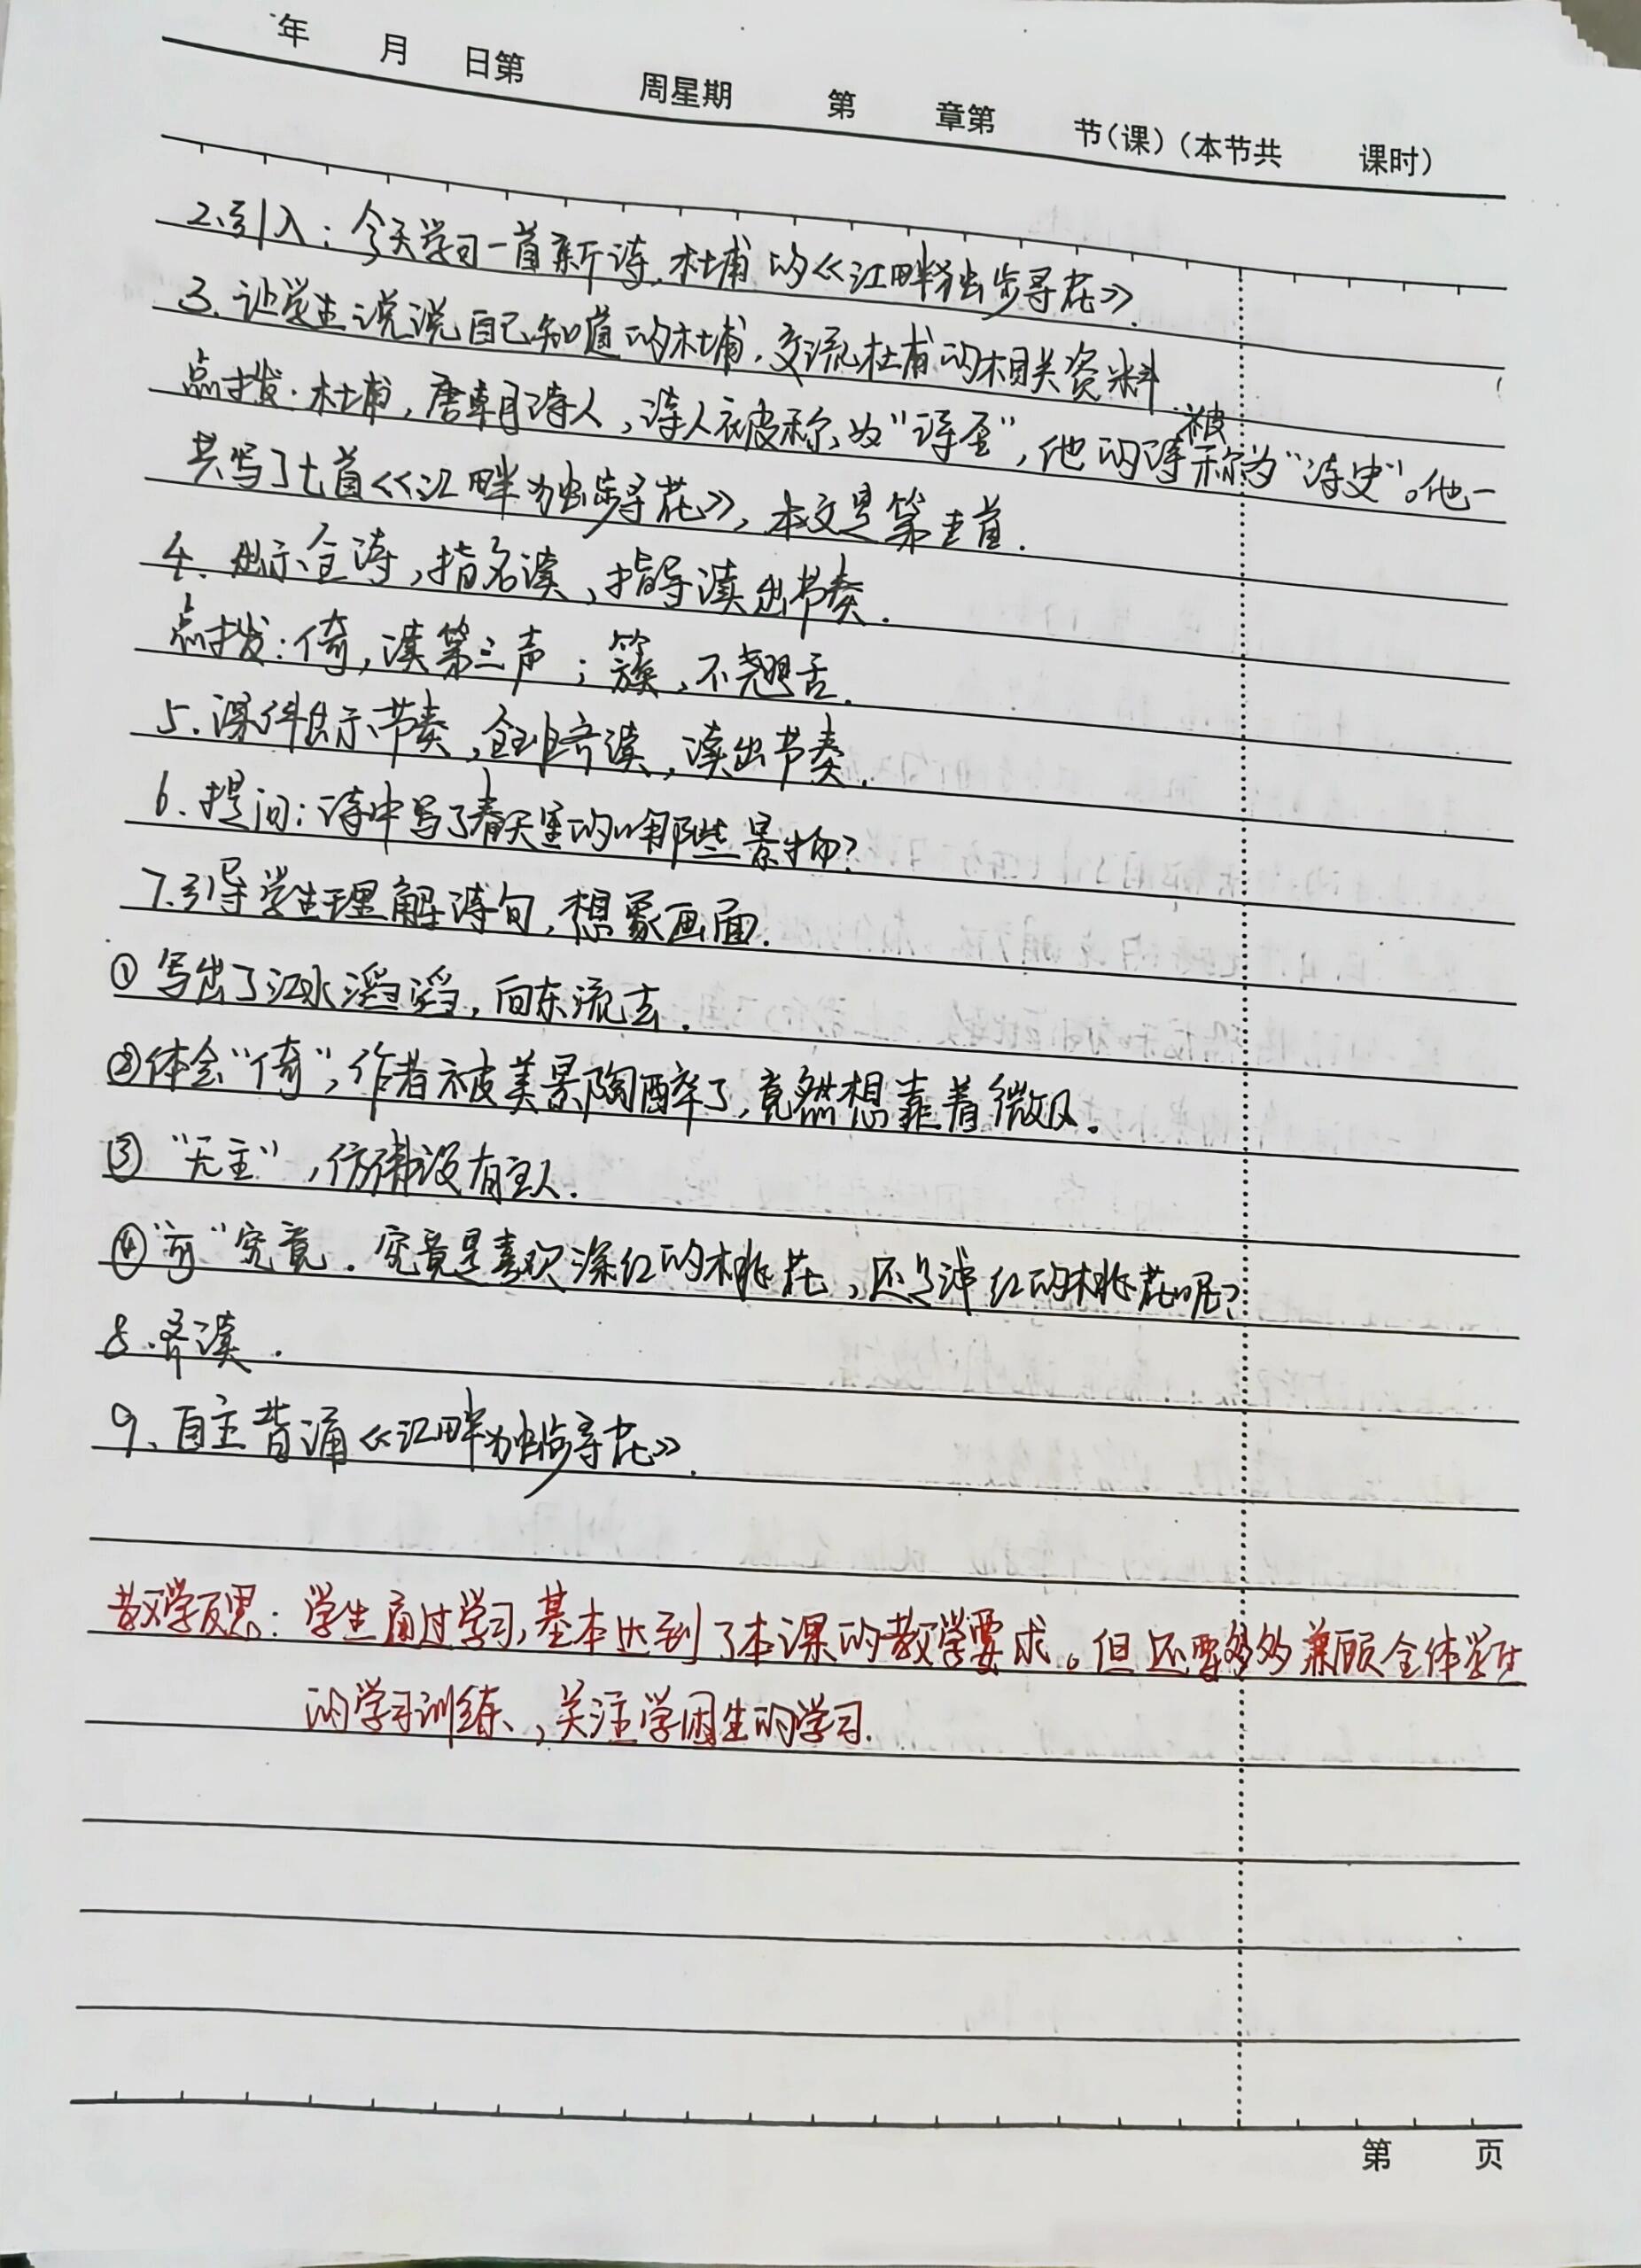 年 月 日第 周星期 第 章第 节(课)(本节共 课时)
2.引入：今天学习一首新诗，杜甫的《江畔独步寻花》.
3.让学生说说自己知道的杜甫，交流杜甫的相关资料.
点拨.杜甫，唐朝诗人，诗人被称为“诗圣”，他的诗被称为“诗史”。他一
共写了七首《江畔独步寻花》，本文是第五首.
4.出示全诗，指名读，指导读出节奏.
点拨：倚，读第三声；簇，不翘舌.
5.课件出示节奏，全班齐读，读出节奏.
6.提问：诗中写了春天里的哪些景物？
7.引导学生理解诗句，想象画面.
①写出了江水滔滔，向东流去.
②体会“倚”，作者被美景陶醉了，竟然想靠着微风.
③“无主”，仿佛没有主人.
④“可”究竟.究竟是喜欢深红的桃花，还是浅红的桃花呢？
8.齐读.
9、自主背诵《江畔独步寻花》.
教学反思：学生通过学习，基本达到了本课的教学要求。但还要多多兼顾全体学生
的学习训练，关注学困生的学习.
第 页